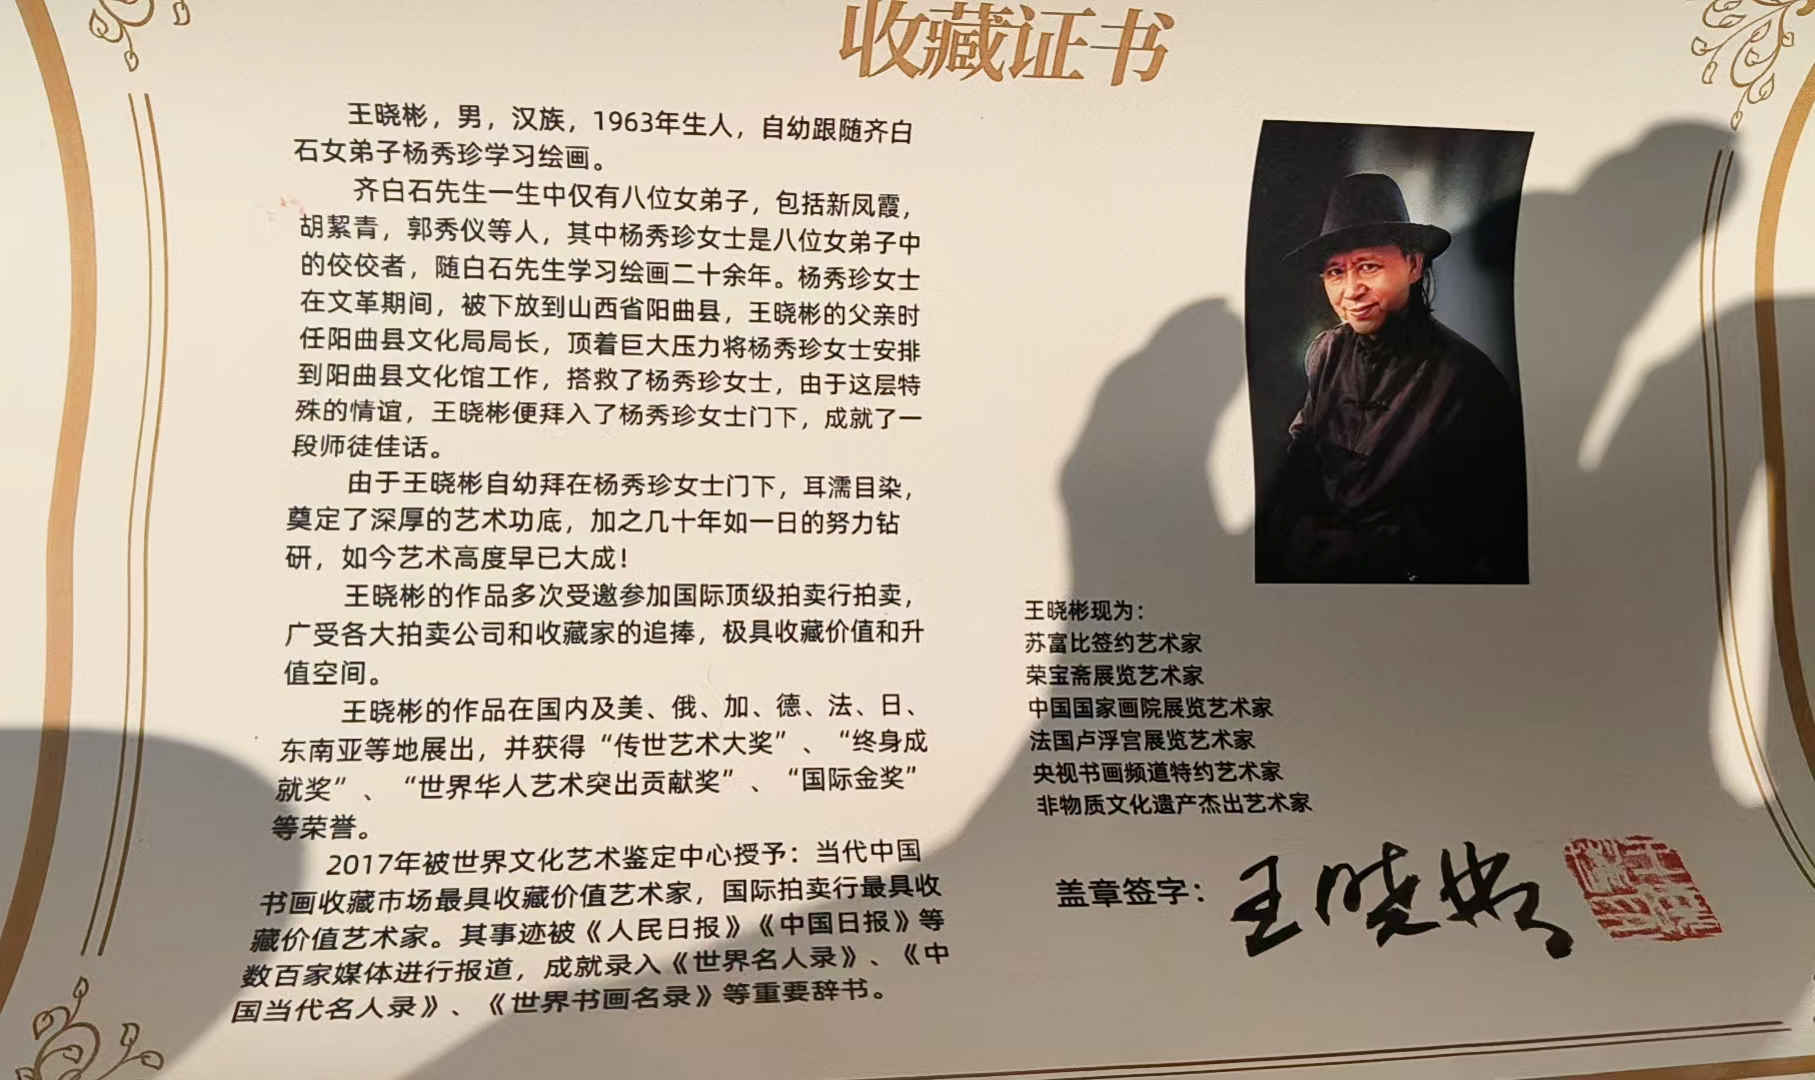 收藏证书
王晓彬，男，汉族，1963年生人，自幼跟随齐白
石女弟子杨秀珍学习绘画。
齐白石先生一生中仅有八位女弟子，包括新凤霞，
胡絜青，郭秀仪等人，其中杨秀珍女士是八位女弟子中
的佼佼者，随白石先生学习绘画二十余年。杨秀珍女士
在文革期间，被下放到山西省阳曲县，王晓彬的父亲时
任阳曲县文化局局长，顶着巨大压力将杨秀珍女士安排
到阳曲县文化馆工作，搭救了杨秀珍女士，由于这层特
殊的情谊，王晓彬便拜入了杨秀珍女士门下，成就了一
段师徒佳话。
由于王晓彬自幼拜在杨秀珍女士门下，耳濡目染，
奠定了深厚的艺术功底，加之几十年如一日的努力钻
研，如今艺术高度早已大成！
王晓彬的作品多次受邀参加国际顶级拍卖行拍卖，
广受各大拍卖公司和收藏家的追捧，极具收藏价值和升
值空间。
王晓彬的作品在国内及美、俄、加、德、法、日、
东南亚等地展出，并获得“传世艺术大奖”、“终身成
就奖”、“世界华人艺术突出贡献奖”、“国际金奖”
等荣誉。
2017年被世界文化艺术鉴定中心授予：当代中国
书画收藏市场最具收藏价值艺术家，国际拍卖行最具收
藏价值艺术家。其事迹被《人民日报》《中国日报》等
数百家媒体进行报道，成就录入《世界名人录》、《中
国当代名人录》、《世界书画名录》等重要辞书。
王晓彬现为：
苏富比签约艺术家
荣宝斋展览艺术家
中国国家画院展览艺术家
法国卢浮宫展览艺术家
央视书画频道特约艺术家
非物质文化遗产杰出艺术家
盖章签字：王晓彬